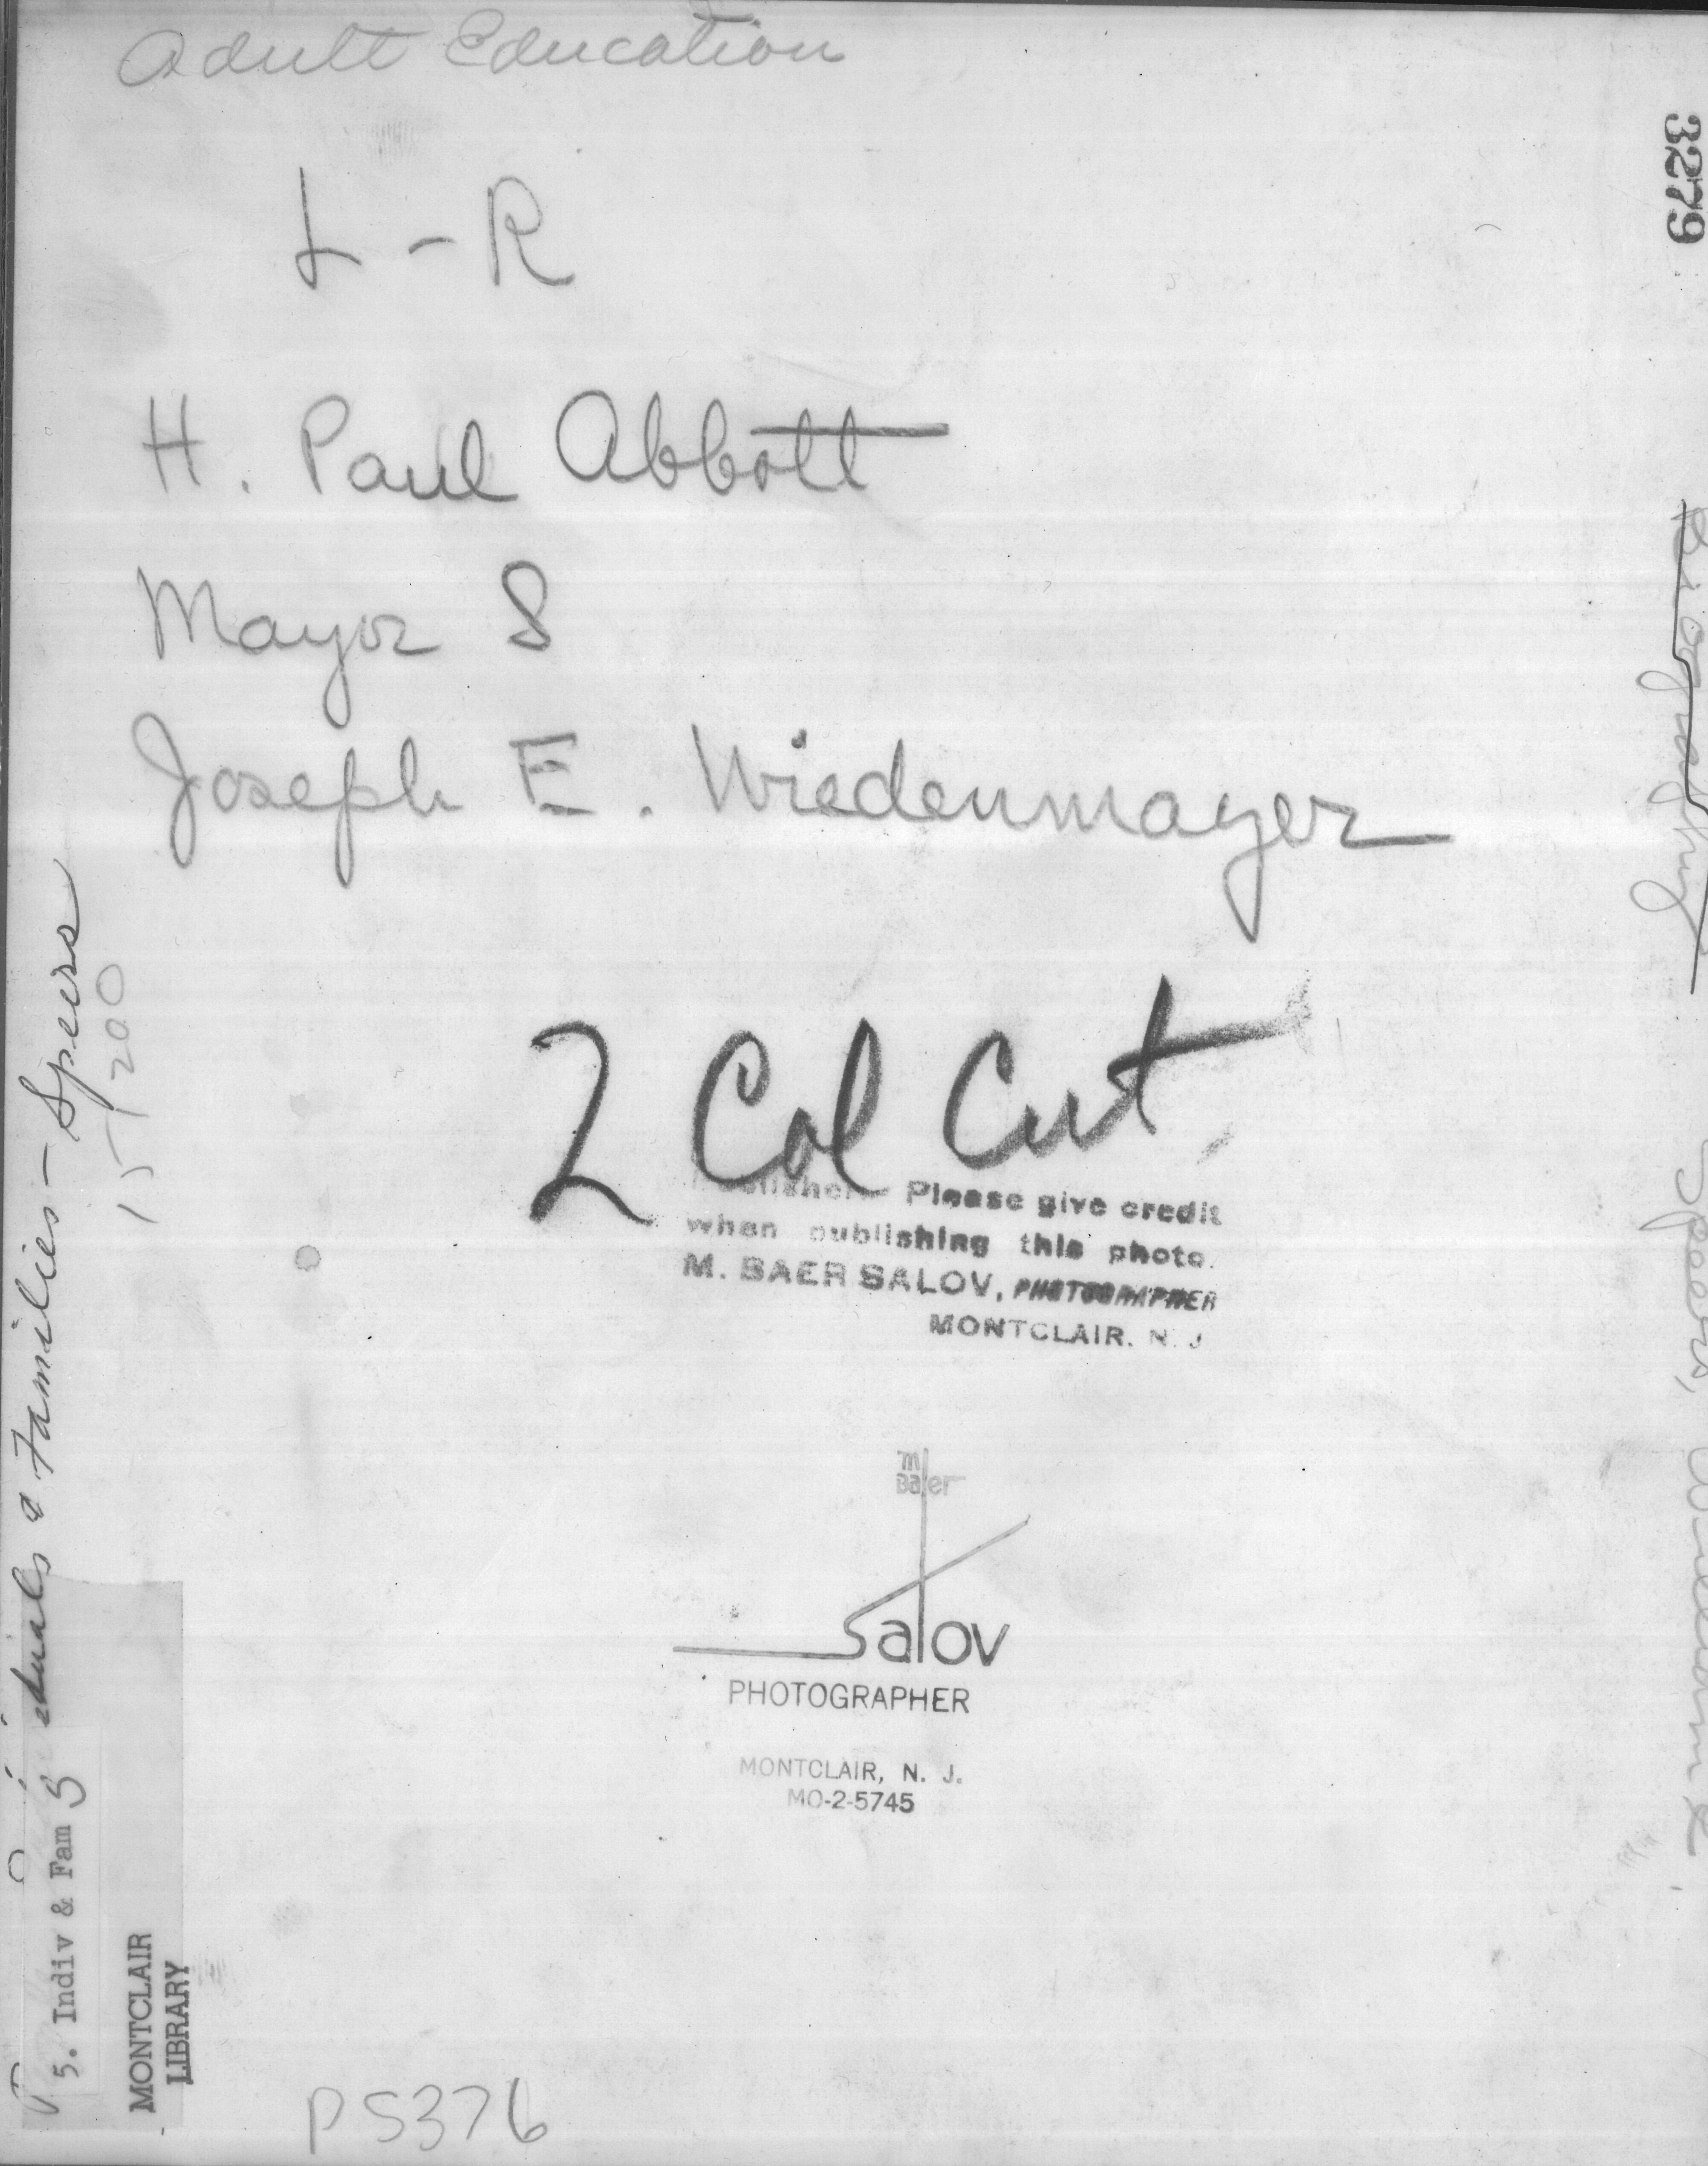 Adult Education
3279
L - R
H. Paul Abbott
Mayor S
Joseph E. Wiedenmayer
2 Col Cut
Please give credit
when publishing this photo.
M. BAER SALOV, PHOTOGRAPHER
MONTCLAIR. N. J
M Baer
Salov
PHOTOGRAPHER
MONTCLAIR, N. J.
MO-2-5745
& Families - Speers
15-1200
5. Indiv & Fam S
MONTCLAIR
LIBRARY
PS376
Biography
Speers,